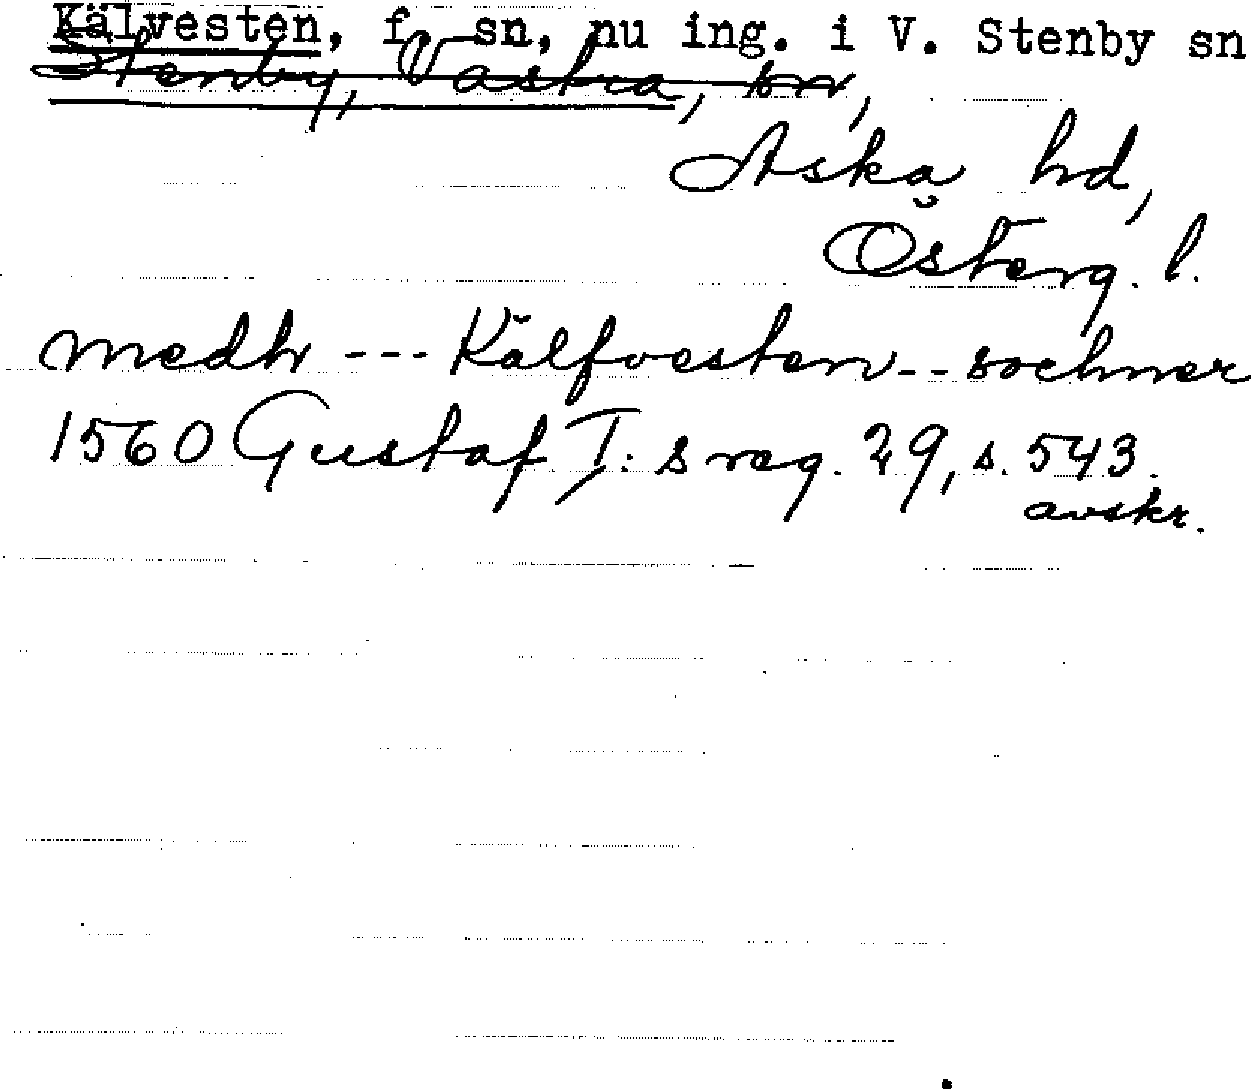 Kälvesten, f. sn, nu ing. i V. Stenby sn
Stenby, Västra, sn,
Aska hd,
Österg. l.
medh --- Kälfvesten -- sochner
1560 Gustaf I:s reg. 29, s. 543.
avskr.